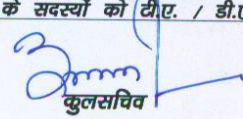 के सदस्यों को टी.ए. / डी.ए
कुलसचिव